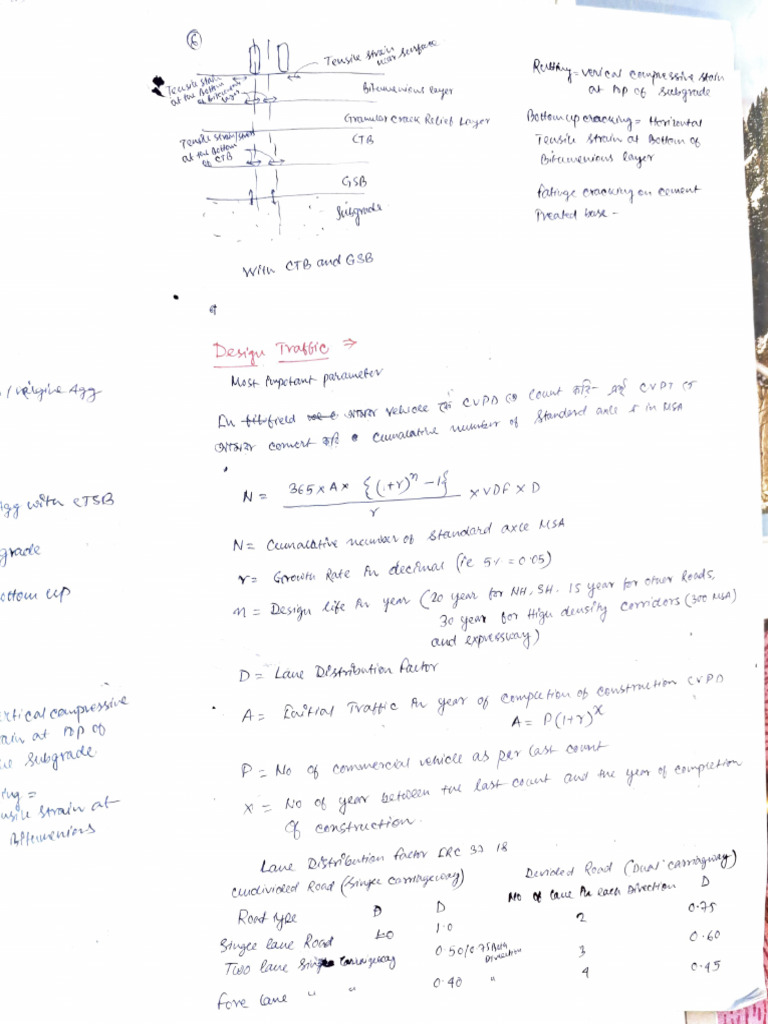 6
Tensile strain
near surface
Tensile strain
at the Bottom
of bitumenious
layer
Bitumenious layer
Granular Crack Relief Layer
Tensile strain/stress
at the Bottom
of CTB
CTB
GSB
Subgrade
With CTB and GSB
Rutting = verical compressive stain
at top of subgrade
Bottom up cracking = Horizontal
Tensile strain at Bottom of
Bitumenious layer
fatiuge cracking on cement
Treated base -
Design Traffic ⇒
Most Impotant parameter
In field আমরা vehicle কে CVPD তে count করি- এই CVPD কে
আমরা convert করি cumalative number of standard axle s in MSA
N = 365 x A x {(1+r)^n - 1} / r x VDF x D
N = Cumalative number of standard axle MSA
r = Growth Rate in decimal (ie 5% = 0.05)
n = Design life in year (20 year for NH, SH. 15 year for other Roads,
30 year for High density corridors (300 MSA)
and expressway)
D = Lane Distribution factor
A = Initial Traffic in year of completion of construction CVPD
A = P(1+r)^x
P = No of commercial vehicle as per last count
x = No of year between the last count and the year of completion
of construction.
Lane Distribution factor IRC 37 18
undivided Road (Single carriageway)
Road type D D
Single lane Road 1.0
Two lane Single carriageway 0.50/0.75 Both Direction
fore lane " " 0.40 "
Devided Road (Dual carriagway)
No of lane in each Direction D
2 0.75
3 0.60
4 0.45
Agg
Agg with CTSB
grade
ottom up
ertical compressive
rain at top of
subgrade
ing =
nsile strain at
Bitumenious